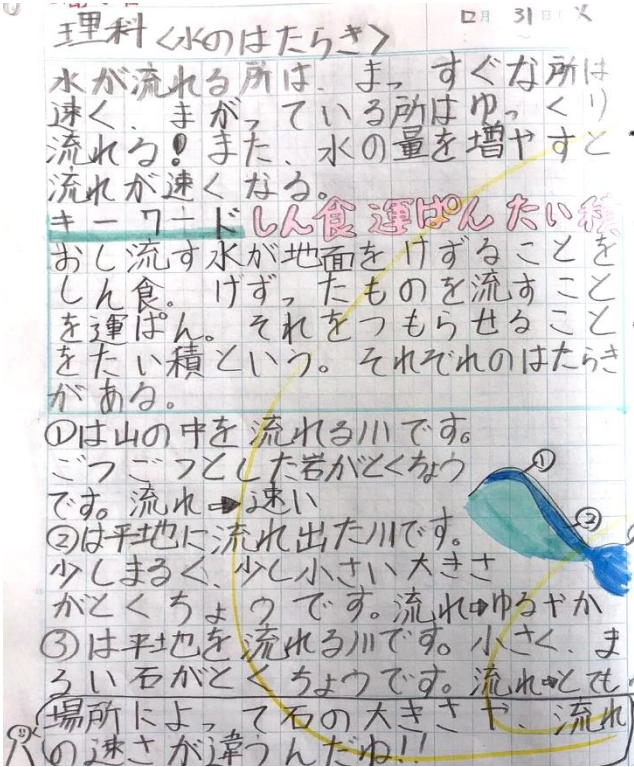 口月 31日 火
理科〈水のはたらき〉
水が流れる所は、まっすぐな所は
速く、まがっている所はゆっくり
流れる!また、水の量を増やすと
流れが速くなる。
キーワード しん食 運ぱん たい積
おし流す水が地面をけずることを
しん食。けずったものを流すこと
を運ぱん。それをつもらせること
をたい積という。それぞれのはたらき
がある。
①は山の中を流れる川です。
ごつごつとした岩がとくちょう
です。流れ➡速い
①
②
②は平地に流れ出た川です。
少しまるく、少し小さい大きさ
がとくちょうです。流れ➡ゆるやか
③は平地を流れる川です。小さく、ま
るい石がとくちょうです。流れ➡とても
場所によって石の大きさや、流れ
の速さが違うんだね!!